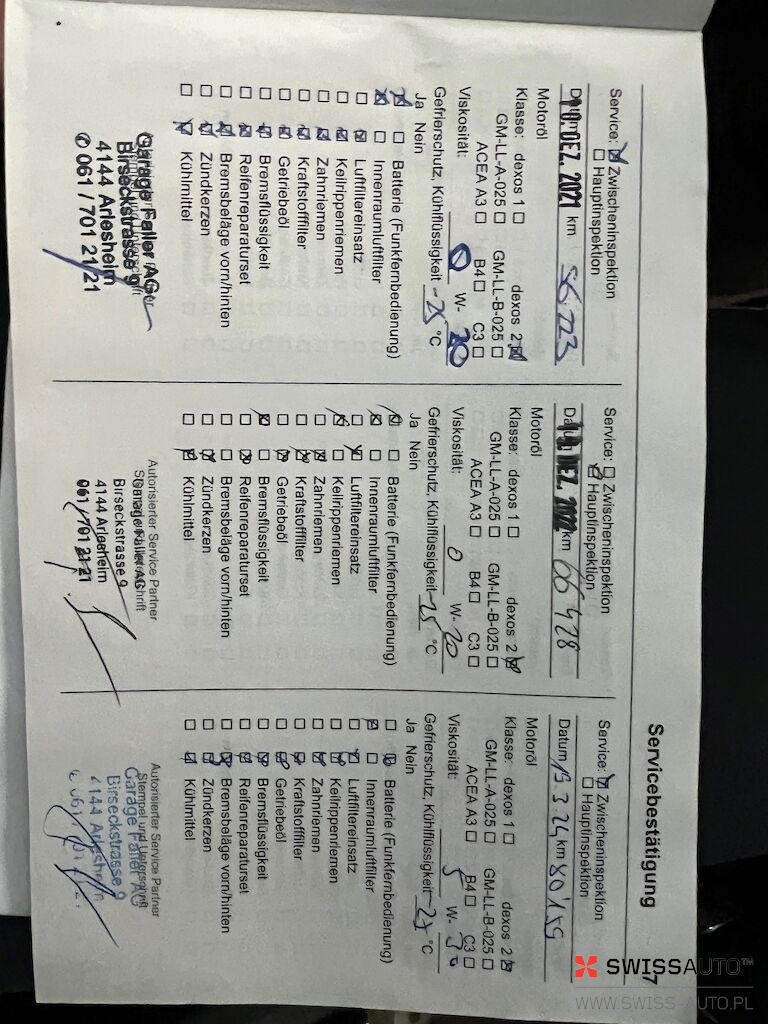 Servicebestätigung
Service: Zwischeninspektion
Hauptinspektion
10. DEZ. 2021 km 56 223
Motoröl
Klasse: dexos 1 dexos 2
GM-LL-A-025 GM-LL-B-025
ACEA A3 B4 C3
Viskosität: 0 W- 20
Gefrierschutz, Kühlflüssigkeit -25 °C
Ja Nein
Batterie (Funkfernbedienung)
Innenraumluftfilter
Luftfiltereinsatz
Keilrippenriemen
Zahnriemen
Kraftstofffilter
Getriebeöl
Bremsflüssigkeit
Reifenreparaturset
Bremsbeläge vorn/hinten
Zündkerzen
Kühlmittel
Garage Faller AG
Birseckstrasse 9
4144 Arlesheim
✆ 061 / 701 21 21
Service: Zwischeninspektion
Hauptinspektion
DEZ. 2022 km 66 428
Motoröl
Klasse: dexos 1 dexos 2
GM-LL-A-025 GM-LL-B-025
ACEA A3 B4 C3
Viskosität: 0 W- 20
Gefrierschutz, Kühlflüssigkeit -25 °C
Ja Nein
Batterie (Funkfernbedienung)
Innenraumluftfilter
Luftfiltereinsatz
Keilrippenriemen
Zahnriemen
Kraftstofffilter
Getriebeöl
Bremsflüssigkeit
Reifenreparaturset
Bremsbeläge vorn/hinten
Zündkerzen
Kühlmittel
Autorisierter Service Partner
Garage Faller AG
Birseckstrasse 9
4144 Arlesheim
061 / 701 21 21
Service: Zwischeninspektion
Hauptinspektion
Datum 13.3.24 km 80'155
Motoröl
Klasse: dexos 1 dexos 2
GM-LL-A-025 GM-LL-B-025
ACEA A3 B4 C3
Viskosität: 5 W- 30
Gefrierschutz, Kühlflüssigkeit -27 °C
Ja Nein
Batterie (Funkfernbedienung)
Innenraumluftfilter
Luftfiltereinsatz
Keilrippenriemen
Zahnriemen
Kraftstofffilter
Getriebeöl
Bremsflüssigkeit
Reifenreparaturset
Bremsbeläge vorn/hinten
Zündkerzen
Kühlmittel
Autorisierter Service Partner
Stempel und Unterschrift
Garage Faller AG
Birseckstrasse 9
4144 Arlesheim
SWISSAUTO™
WWW.SWISS-AUTO.PL